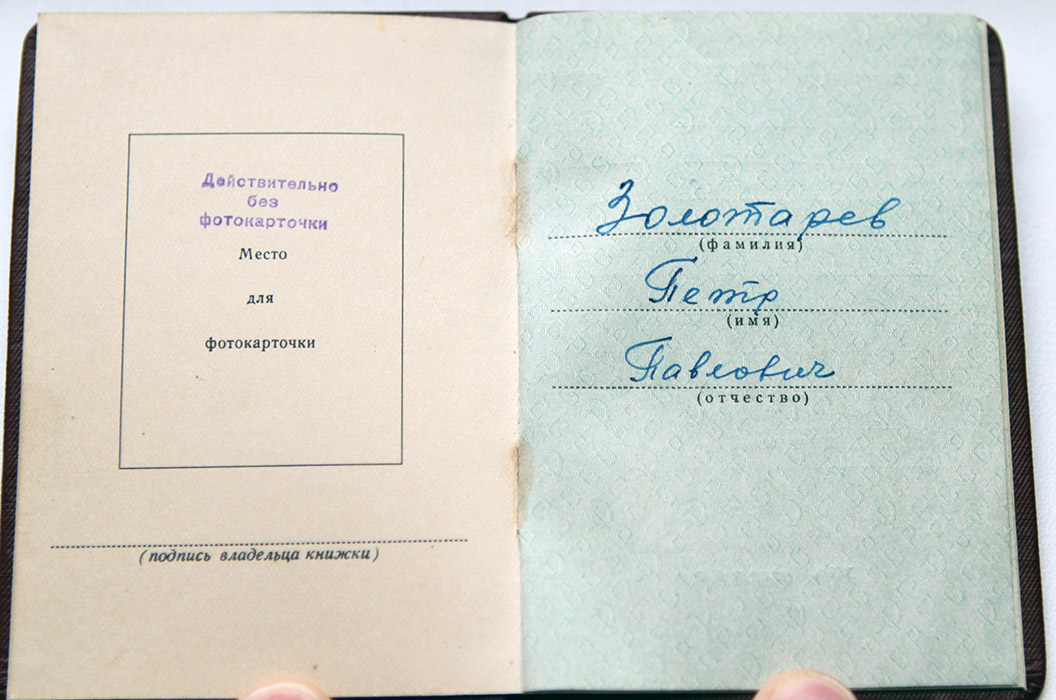 Действительно
без
фотокарточки
Место
для
фотокарточки
(подпись владельца книжки)
Золотарев
(фамилия)
Петр
(имя)
Павлович
(отчество)